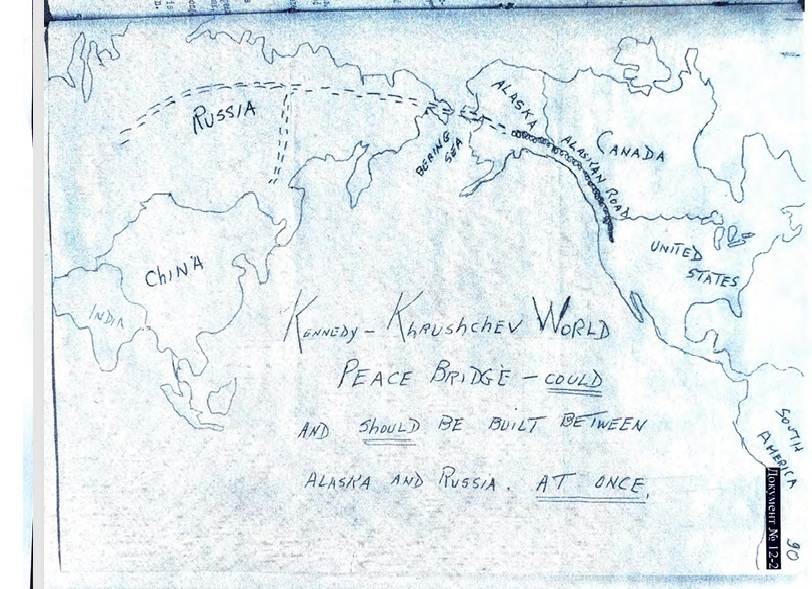 RUSSIA
BERING
SEA
ALASKA
ALASKAN ROAD
CANADA
UNITED
STATES
CHINA
INDIA
KENNEDY - KHRUSHCHEV WORLD
PEACE BRIDGE - COULD
AND SHOULD BE BUILT BETWEEN
ALASKA AND RUSSIA. AT ONCE.
SOUTH
AMERICA
Документ № 12-2
90